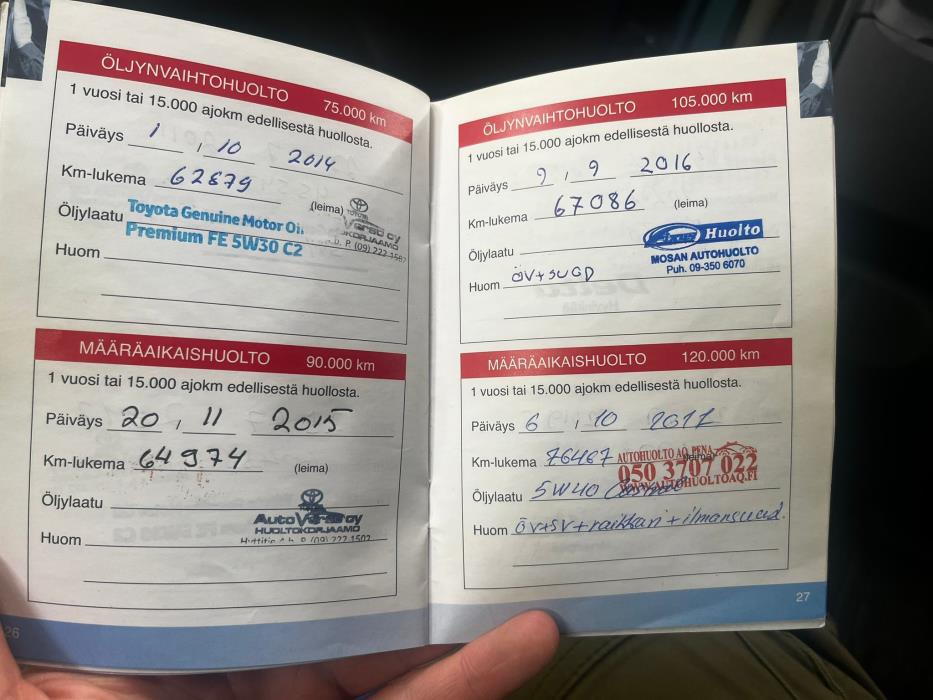 ÖLJYNVAIHTOHUOLTO 75.000 km
1 vuosi tai 15.000 ajokm edellisestä huollosta.
Päiväys 1 , 10 2014
Km-lukema 62879
(leima)
TOYOTA
Öljylaatu Toyota Genuine Motor Oi
Premium FE 5W30 C2
Huom
MÄÄRÄAIKAISHUOLTO 90.000 km
1 vuosi tai 15.000 ajokm edellisestä huollosta.
Päiväys 20 , 11 2015
Km-lukema 64974 (leima)
Öljylaatu
AutoVerso oy
HUOLTOKORJAAMO
Huom
26
ÖLJYNVAIHTOHUOLTO 105.000 km
1 vuosi tai 15.000 ajokm edellisestä huollosta.
Päiväys 9 , 9 2016
Km-lukema 67086 (leima)
Öljylaatu
Huolto
MOSAN AUTOHUOLTO
Puh. 09-350 6070
Huom ÖV+SUOD
MÄÄRÄAIKAISHUOLTO 120.000 km
1 vuosi tai 15.000 ajokm edellisestä huollosta.
Päiväys 6 , 10 2017
Km-lukema 76467 (leima)
AUTOHUOLTO AQ PENA
050 3707 022
WWW.AUTOHUOLTOAQ.FI
Öljylaatu 5W40
Huom ÖV+SV+raikkari+ilmansuod.
27